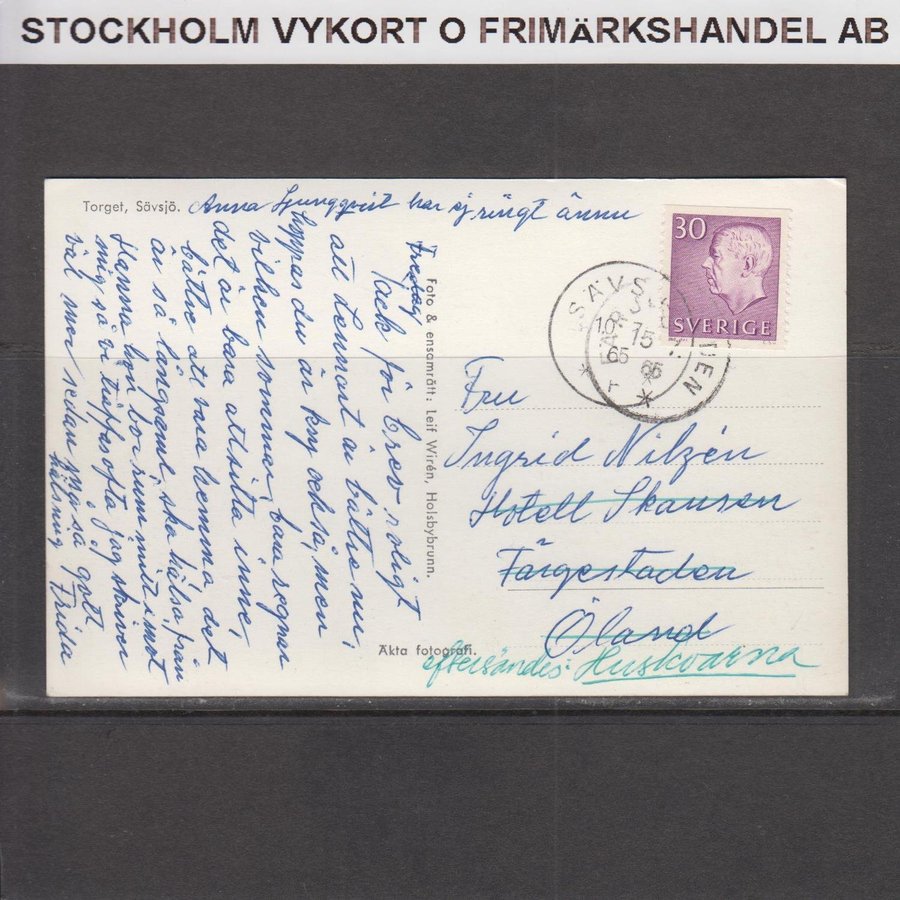 STOCKHOLM VYKORT O FRIMÄRKSHANDEL AB
Torget, Sävsjö.
Anna Ljungqvist har ej ringt ännu
Fredag
Tack för brev roligt
att Lennart är bättre nu,
hoppas du är kry också, men
vilken sommar, bara regnar
det är bara att sitta inne,
bättre att vara hemma det
är så långsamt, ska hälsa från
Hanna hon bor rum mitt imot
mig så vi träffas ofta jag skriver
väl mer sedan må så gott
hälsning Frida
Foto & ensamrätt: Leif Wirén, Holsbybrunn.
Äkta fotografi.
30
SVERIGE
Fru
Ingrid Nilzén
Hotell Skansen
Färgestaden
Öland
eftersändes: Huskvarna